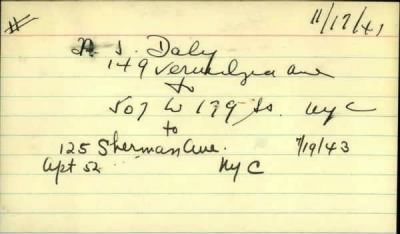 11/17/41
A. J. Daly
149 Vermilyea Ave
to
507 W 179 St. NYC
to
125 Sherman Ave. 7/19/43
Apt 52 NYC